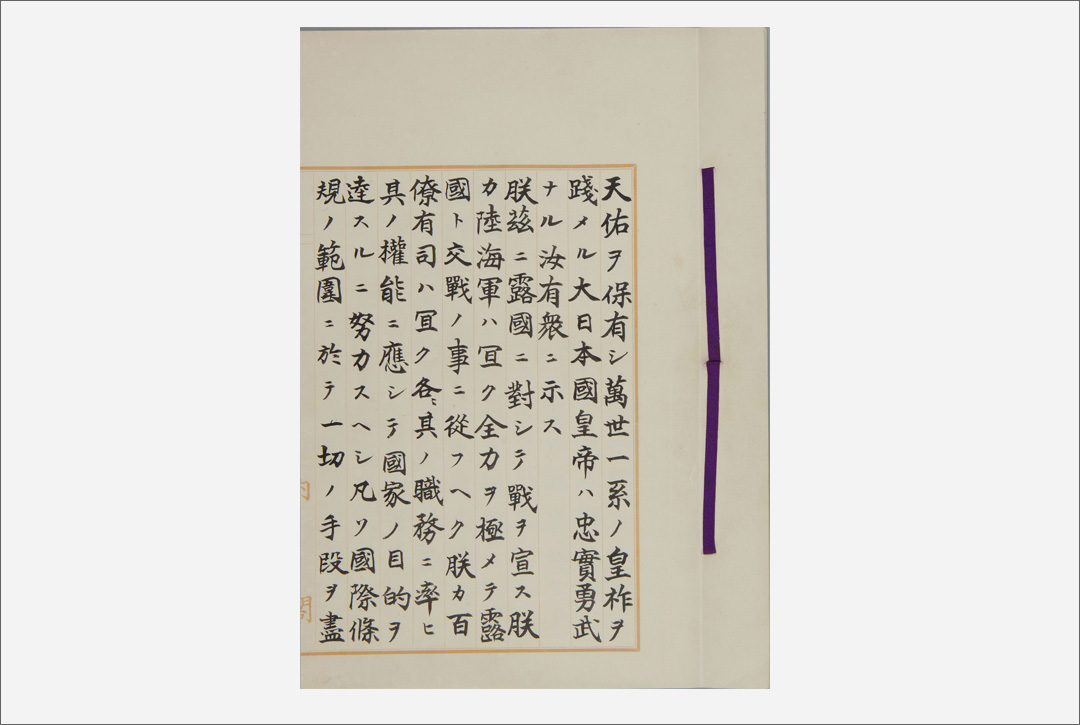 天佑ヲ保有シ萬世一系ノ皇祚ヲ
踐メル大日本國皇帝ハ忠實勇武
ナル汝有衆ニ示ス
朕茲ニ露國ニ對シテ戰ヲ宣ス朕
カ陸海軍ハ冝ク全力ヲ極メテ露
國ト交戰ノ事ニ從フヘク朕カ百
僚有司ハ冝ク各〻其ノ職務ニ率ヒ
其ノ權能ニ應シテ國家ノ目的ヲ
達スルニ努力スヘシ凡ソ國際條
規ノ範圍ニ於テ一切ノ手段ヲ盡
内閣